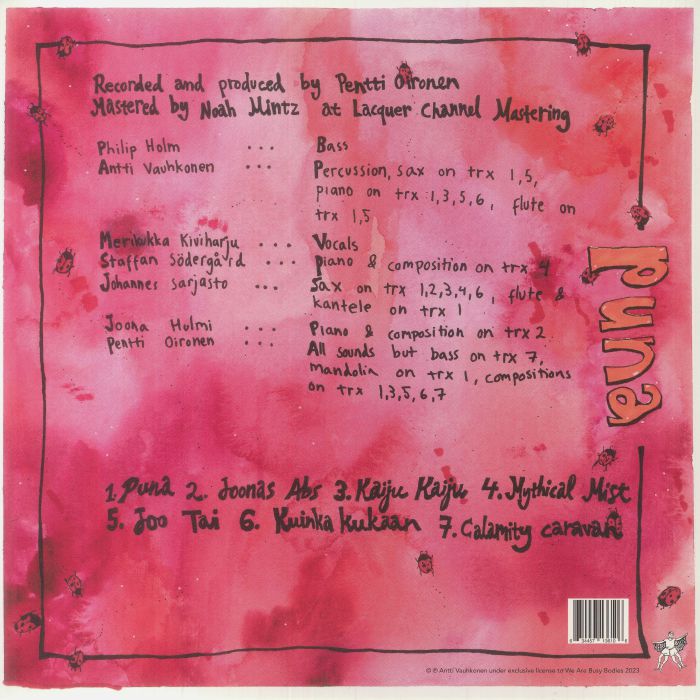 Recorded and produced by Pentti Oironen
Mastered by Noah Mintz at Lacquer Channel Mastering
Philip Holm ... Bass
Antti Vauhkonen ... Percussion, sax on trx 1,5,
piano on trx 1,3,5,6, flute on
trx 1,5
Merikukka Kiviharju ... Vocals
Staffan Södergård ... piano & composition on trx 4
Johannes Sarjasto ... Sax on trx 1,2,3,4,6, flute &
kantele on trx 1
Joona Holmi ... Piano & composition on trx 2
Pentti Oironen ... All sounds but bass on trx 7,
mandolin on trx 1, compositions
on trx 1,3,5,6,7
puna
1. Puna 2. Joonas Abs 3. Kaiju Kaiju 4. Mythical Mist
5. Joo Tai 6. Kuinka kukaan 7. Calamity caravan
© ℗ Antti Vauhkonen under exclusive license to We Are Busy Bodies 2023